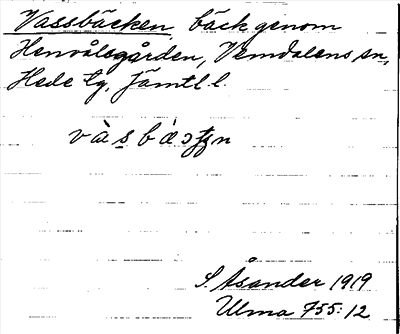 Vassbäcken, bäck genom
Henvålsgården, Vemdalens sn,
Hede tg, Jämtl l.
S. Åsander 1919
Ulma 755:12